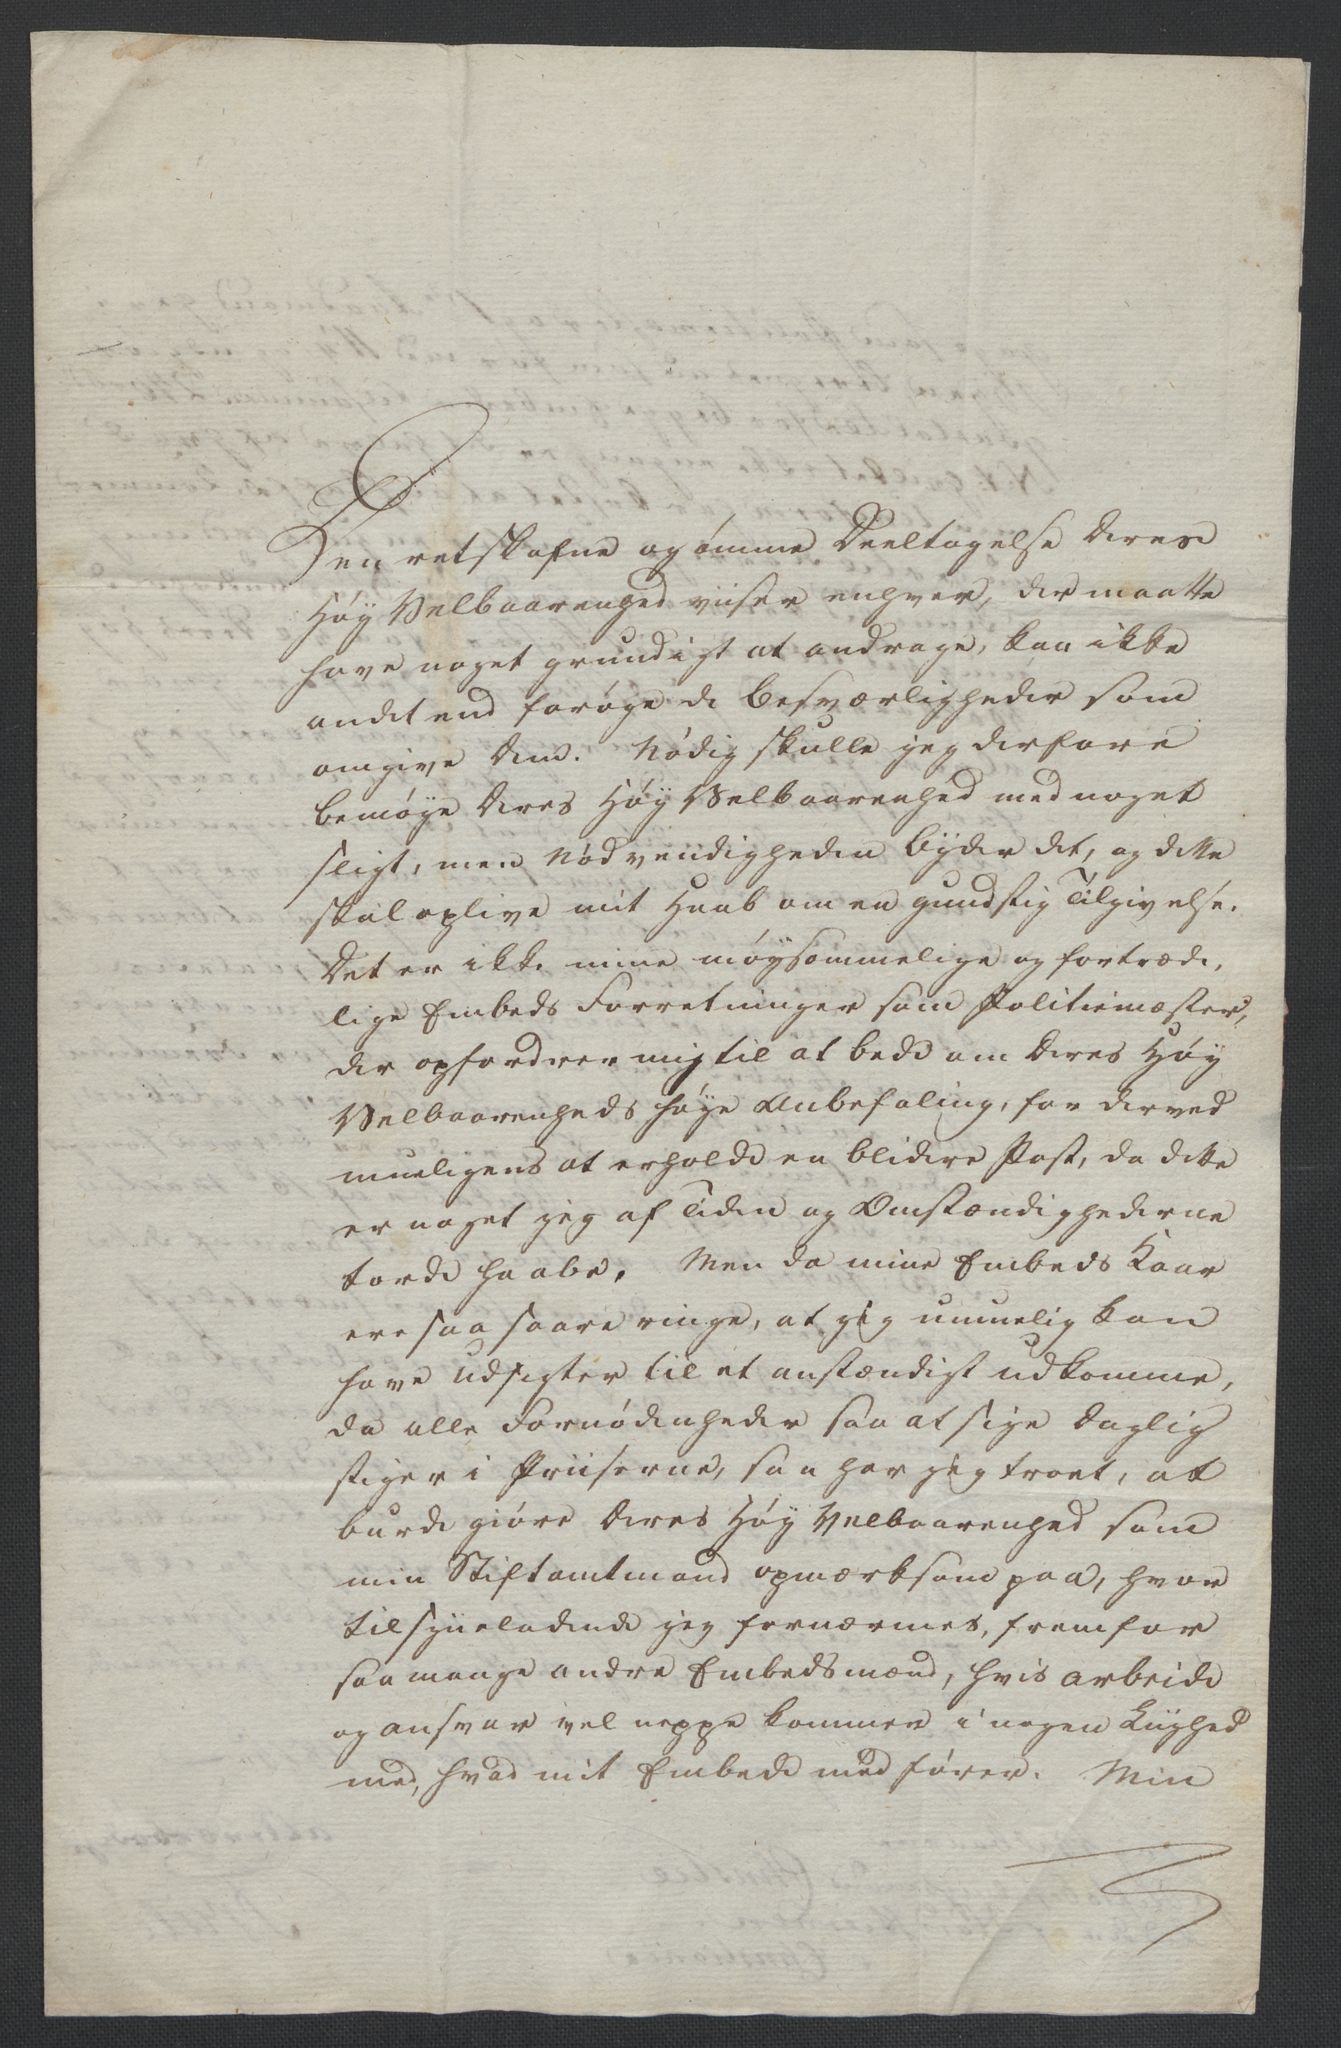 Den retskafne og ømme Deeltagelse Deres
Høy Velbaarenhed viiser enhver, der maatte
have noget grundigt at andrage, kan ikke
andet end forøge de besværligheder som
omgive Dem. Nødig skulle jeg derfore
bemøye Deres Høy Velbaarenhed med noget
sligt, men Nødvendigheden byder det, og dette
skal oplive mit Haab om en gundstig Tilgivelse.
Det er ikke mine møysommelige og fortræde,
lige Embeds Forretninger som Politiemæster,
der opfordrer mig til at bede om Deres Høy
Velbaarenheds høye Anbefaling, for derved
mueligens at erholde en blidere Post, da dette
er noget jeg af Tiden og Omstændighederne
torde haabe. Men da mine Embeds Kaar
ere saa saare ringe, at jeg umuelig kan
have Udsigter til et anstændigt udkomme,
da alle Fornødenheder saa at sige daglig
stiger i Priiserne, saa har jeg troet, at
burde giøre Deres Høy Velbaarenhed som
min Stiftamtmand opmærksom paa, hvor
tilsyneladende jeg fornærmes, fremfor
saa mange andre Embedsmænd, hvis arbeide
og ansvar vel neppe kommer i nogen Liighed
med, hvad mit Embede medfører. Min